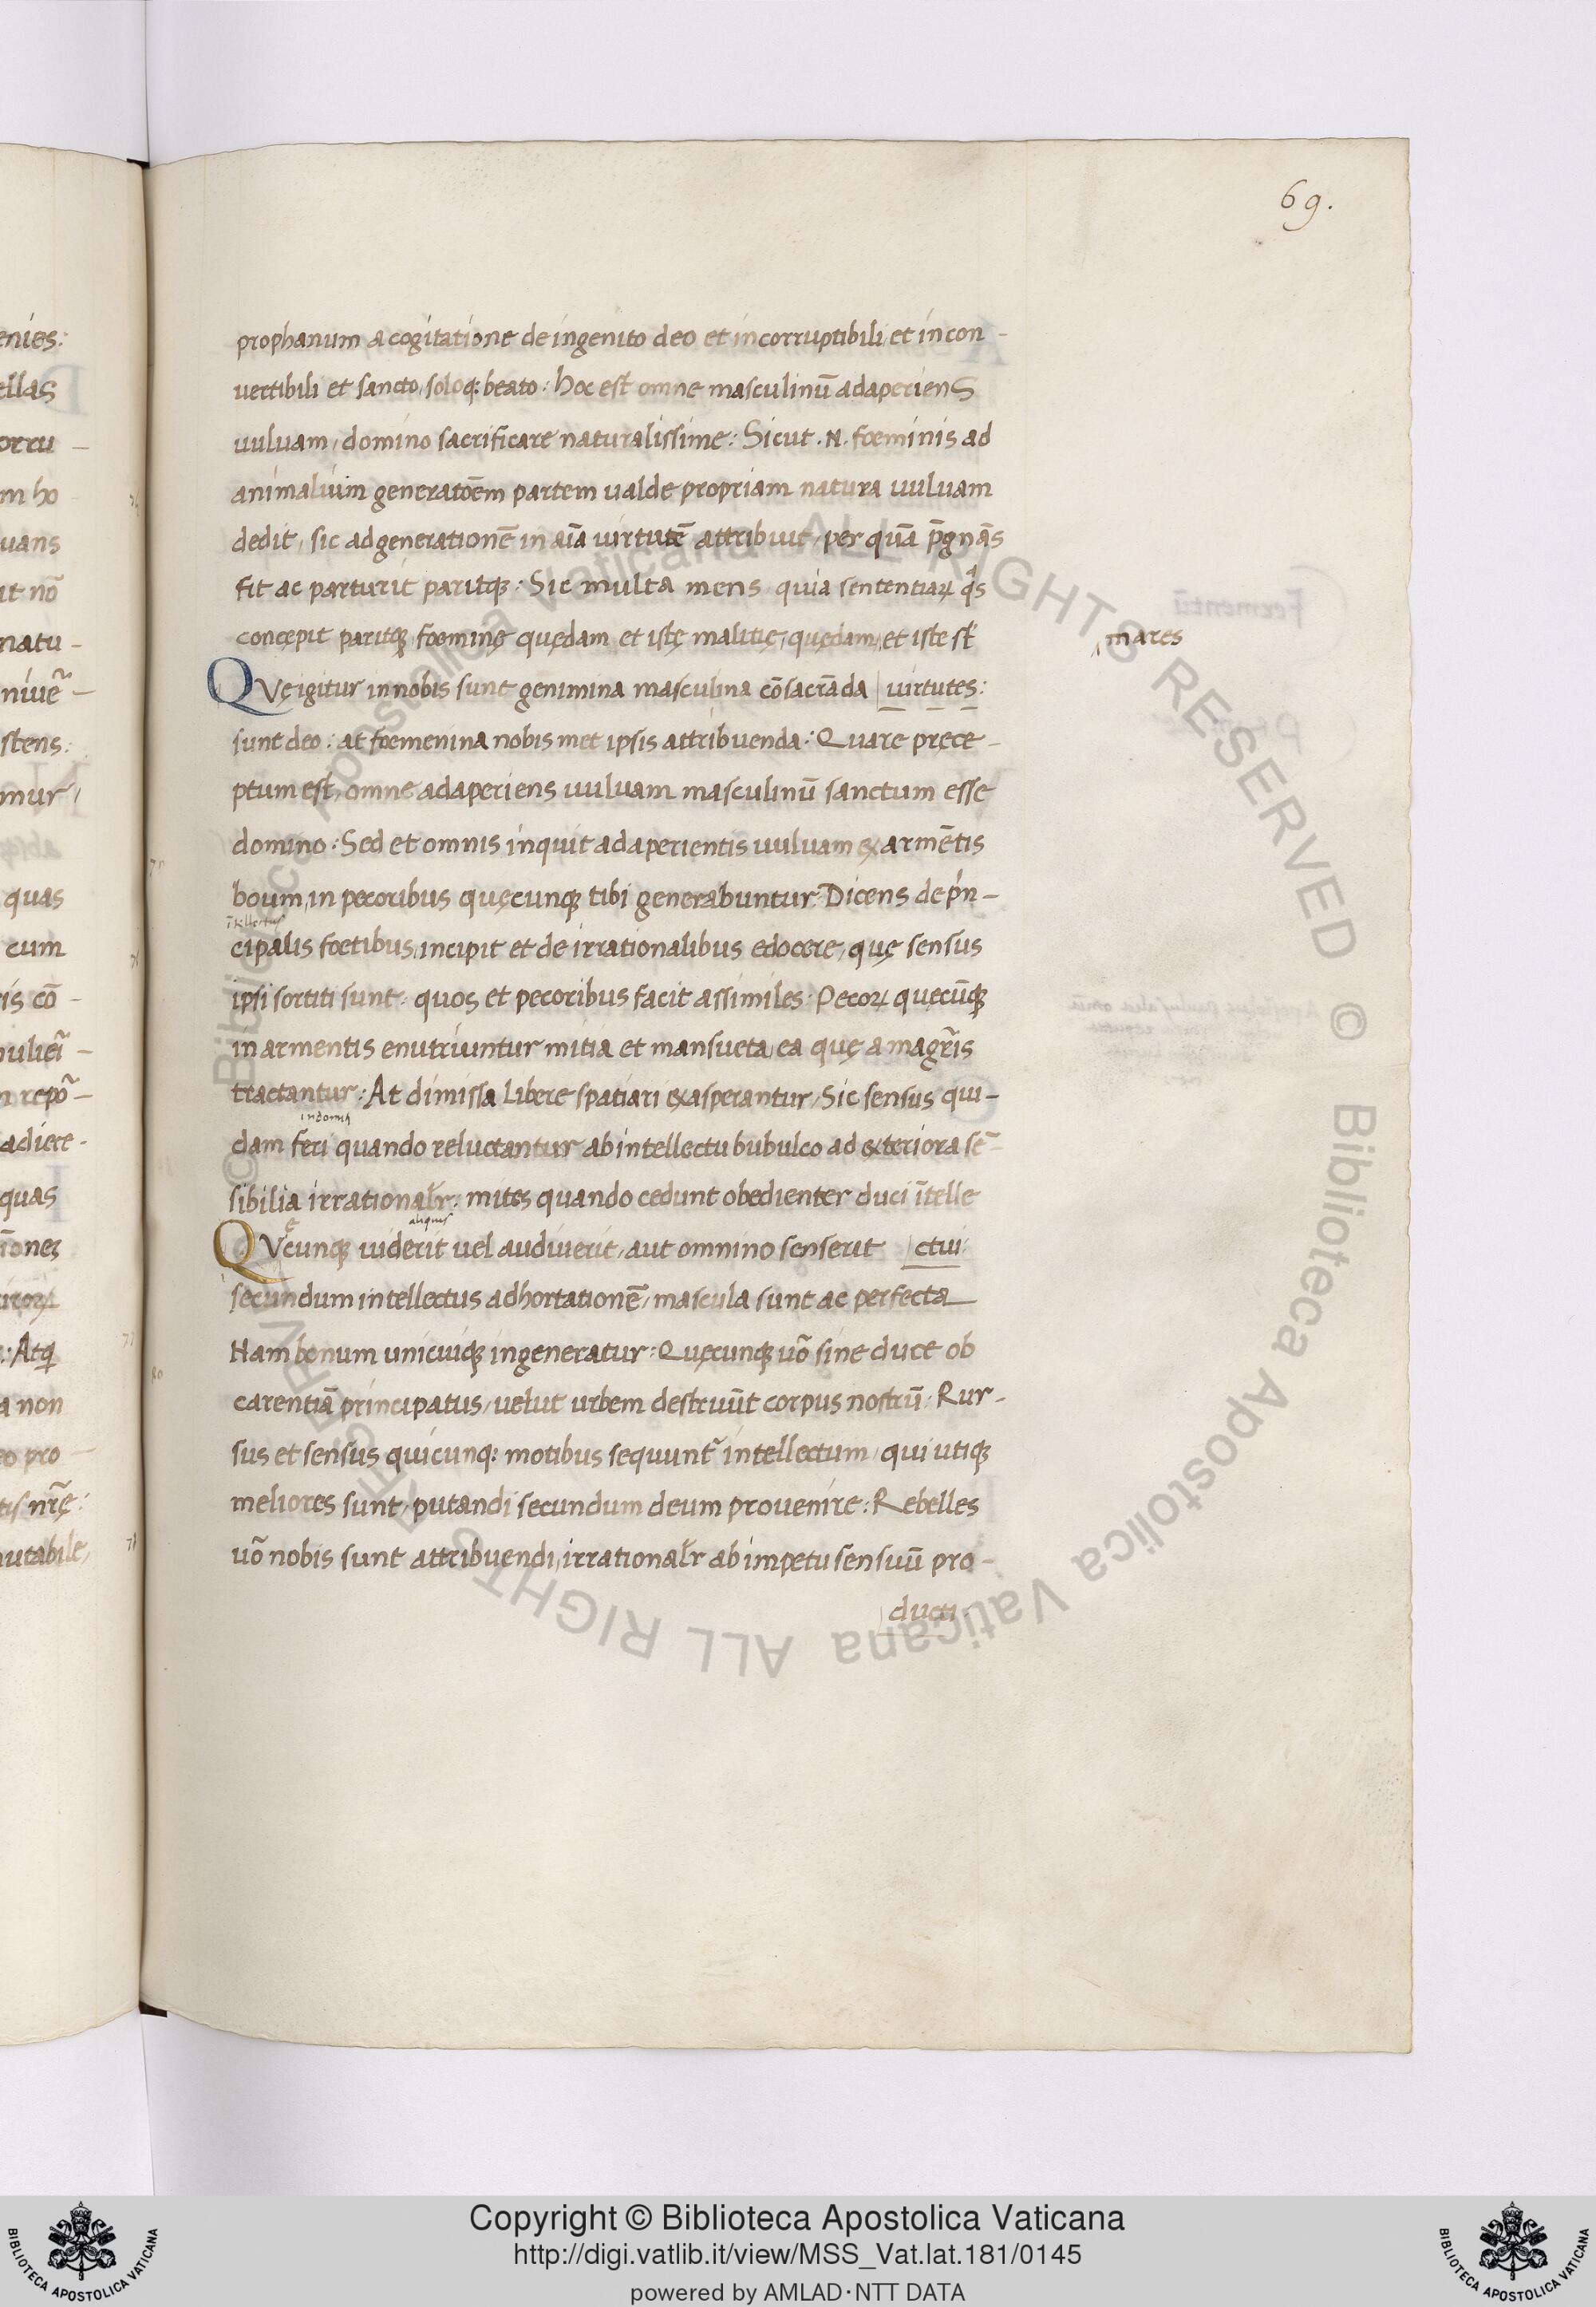 69.
prophanum a cogitatione de ingenito deo et incorruptibili et incon-
vertibili et sancto, soloq; beato: hoc est omne masculinū adaperiens
vulvam, domino sacrificare naturalissime: Sicut .N. foeminis ad
animalium generatōem partem valde propriam natura vulvam
dedit, sic ad generationē in aīa virtutē attribuit, per quā p̄gnās
fit ac parturit paritq;: Sic multa mens quia sententiaꝝ qͣs
concępit paritq; foeminę quędam et istę malitię, quędam, et iste st̄
mares
Qvę igitur in nobis sunt genimina masculina cōsacrāda | virtutes:
sunt deo: at foemenina nobis met ipsis attribuenda: Quare pręce-
ptum est, omne adaperiens vulvam masculinū sanctum esse
domino: Sed et omnis inquit adaperientis vulvam ex armētis
boum, in pecoribus quęcunq; tibi generabuntur: Dicens de prin-
ītellectus
cipalis foetibus, incipit et de irrationalibus edocere, quę sensus
ipsi sortiti sunt: quos et pecoribus facit assimiles: Pecoꝝ quęcūq;
in armentis enutriuntur mitia et mansueta, ea quę a magr̄is
tractantur: At dimissa libere spatiari exasperantur, Sic sensus qui-
indomiti
dam feri quando reluctantur ab intellectu bubulco ad exteriora sē-
sibilia irrationalr̄: mites quando cedunt obedienter duci ītelle
aliquis
Qvęcunq; viderit vel audiverit, aut omnino senserit | ctui:
secundum intellectus adhortationē, mascula sunt ac perfecta
Nam bonum unicuiq; ingeneratur: Quęcunq; vō sine duce ob
carentiā principatus, velut urbem destruūt corpus nostrū: Rur-
sus et sensus quicunq; motibus sequunt᷑ intellectum, qui utiq;
meliores sunt, putandi secundum deum provenire: Rebelles
vō nobis sunt attribuendi, irrationalr̄ ab impetu sensuū pro-
ducti.
Copyright © Biblioteca Apostolica Vaticana
http://digi.vatlib.it/view/MSS_Vat.lat.181/0145
powered by AMLAD·NTT DATA